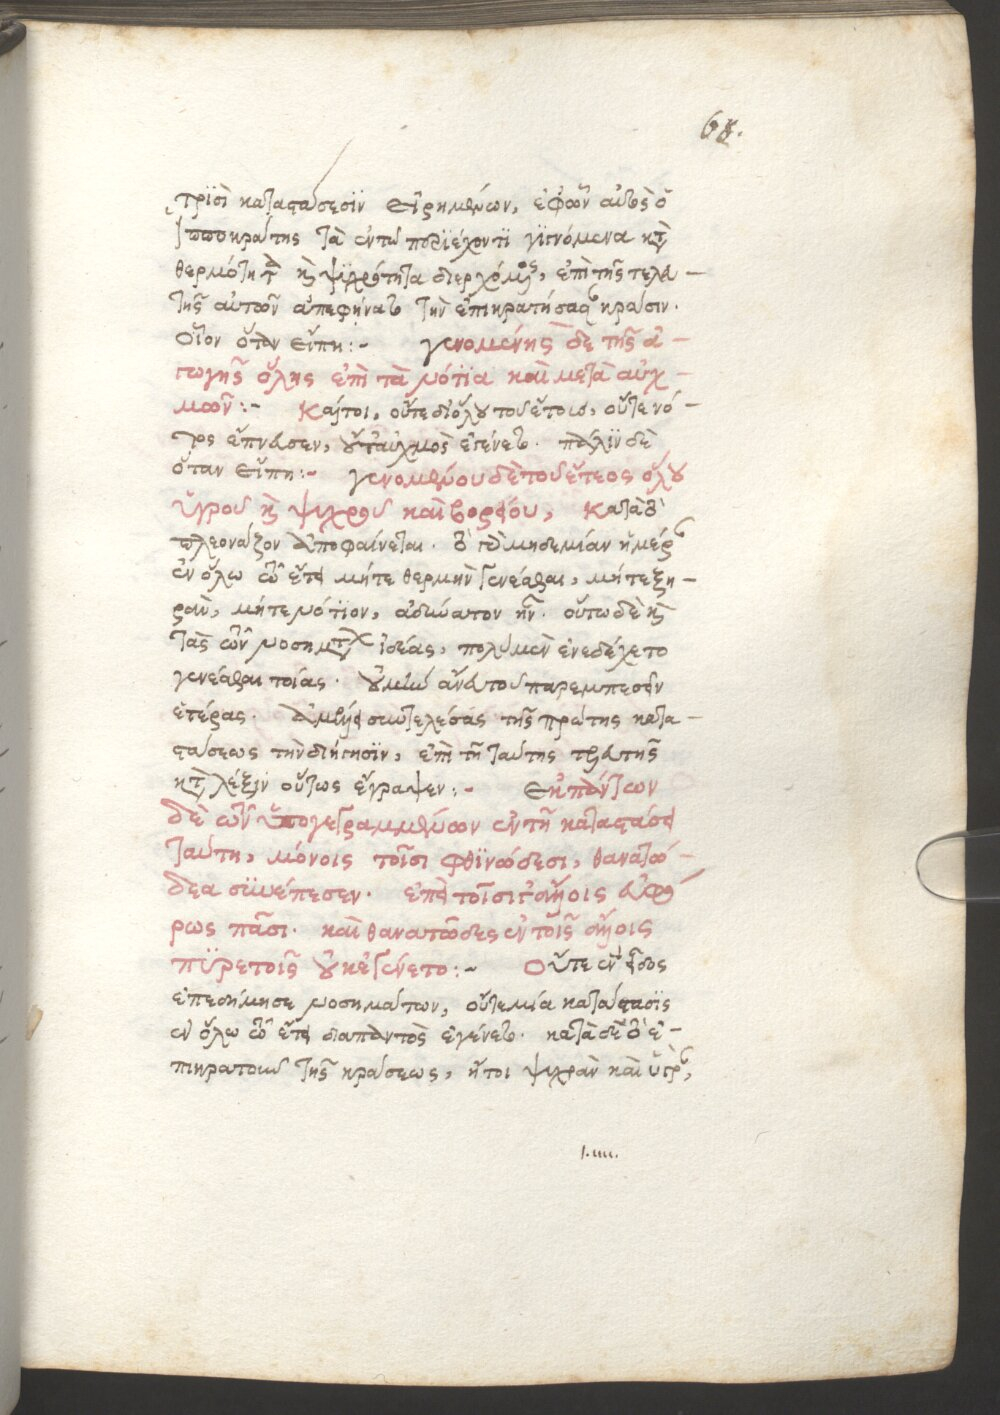 68.
τρϊσὶ καταστάσεσϊν εἰρημένων, ἐφῶν αὐτὸς ὁ
ἱπποκράτης τὰ ἐντῶ περϊέχοντϊ γϊνόμενα κτ
θερμότητα κὶ ψϋχρότητα διερχόμενος, ἐπὶ τῆς τελευ-
τῆς αὐτῶν ἀπεφήνατο τὴν ἐπικρατήσασαν κρᾶσιν.
οἷον ὅταν εἴπη:- γενομένης δὲ τῆς ἀ-
γωγῆς ὅλης ἐπὶ τὰ νότϊα καὶ μετὰ αὐχ-
μῶν:- Καίτοι, οὔτε διόλου τοῦ ἔτους, οὔτε νό-
τος ἔπνευσεν, οὔτ αὐχμὸς ἐγένετο. πάλϊν δὲ
ὅταν εἴπη:- γενομένου δὲ τοῦ ἔτεος ὅλου
ὑγροῦ κὶ ψυχροῦ καὶ βορείου, Κατὰ τὸ
πλεονάζον ἀποφαίνεται. τὸ γὰρ μηδεμίαν ἡμέραν
ἐν ὅλω τῶ ἔτει μήτε θερμὴν γενέσθαι, μήτε ξη-
ρὰν, μήτε νότϊον, ἀδύνατον ἦν. οὕτω δὲ κὶ
τὰς τῶν νοσημάτων ἰδέας, πολὺ μὲν ἐνεδέχετο
γενέσθαι τοίας. οὐ μὴν ἄνευ τοῦ παρεμπεσεῖν
ἑτέρας. ἀμέλει συντελέσας τῆς πρώτης κατα-
στάσεως τὴν διήγησϊν, ἐπὶ τῆ ταύτης τελευτῆς
κτ λέξϊν οὕτως ἔγραψεν:- Ἐκ πάντων
δὲ τῶν ὑπογεγραμμένων ἐν τῆ καταστάσει
ταύτη, μόνοις τοῖσι φθϊνώδεσι, θανατώ-
δεα συνέπεσεν. ἐπεὶ τοῖσι γ ἄλλοις εὐφό
ρως πᾶσι. καὶ θανατῶδες ἐν τοῖς ἄλλοις
πϋρετοῖς οὐκ ἐγένετο:- Οὔτε ἓν εἶδος
ἐπεδήμησε νοσημάτων, οὔτε μία κατάστασϊς
ἐν ὅλω τῶ ἔτει διαπαντὸς ἐγένετο. κατὰ δὲ τὸ ἐ-
πικρατοῦν τῆς κράσεως, ἤτοι ψυχρὰν καὶ ὑγρὰν,